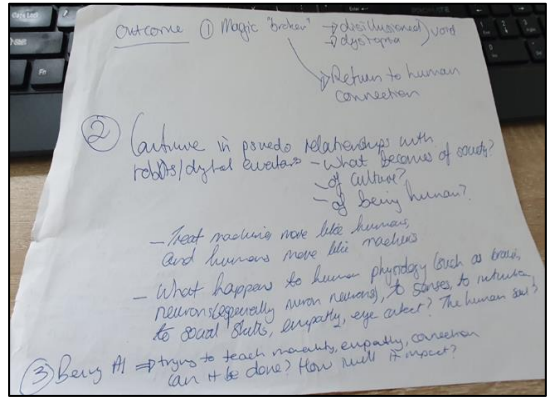 Outcome ① Magic "broken" → disillusioned) void
→ dystopia
→ Return to human
connection
② Continue in psuedo relationships with
robots/digital avatars - What becomes of society?
- of culture?
- of being human?
- Treat machines more like humans,
and humans more like machines
- What happens to human physiology (such as brain,
neurons (especially mirror neurons), to senses, to intuition,
to social skills, empathy, eye contact? The human soul?
③ Being AI ⇒ trying to teach morality, empathy, connection
can it be done? How will it impact?
Fn